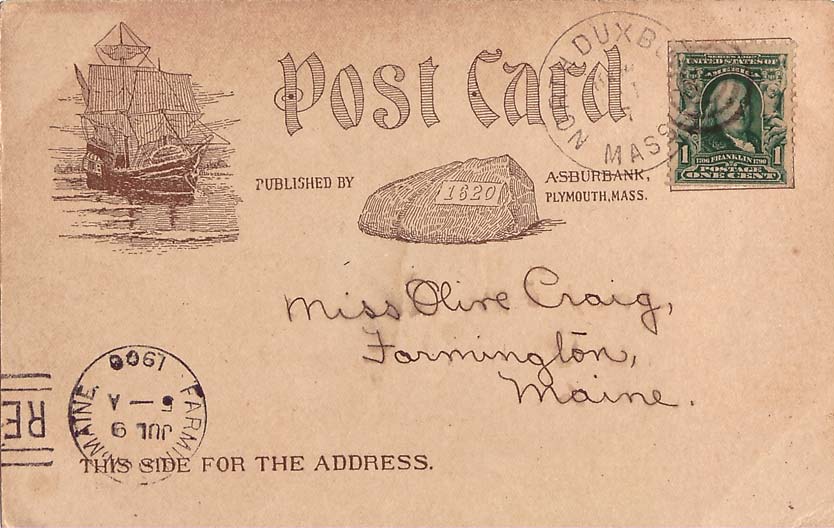 Post Card
PUBLISHED BY
1620
A.S. BURBANK,
PLYMOUTH, MASS.
DUXBURY
MASS
SERIES 1902
UNITED STATES OF
AMERICA
1
1
1706 FRANKLIN 1790
POSTAGE
ONE CENT
Miss Olive Craig,
Farmington,
Maine.
MAINE.
JUL 9
5 - A
1906
REC
THIS SIDE FOR THE ADDRESS.